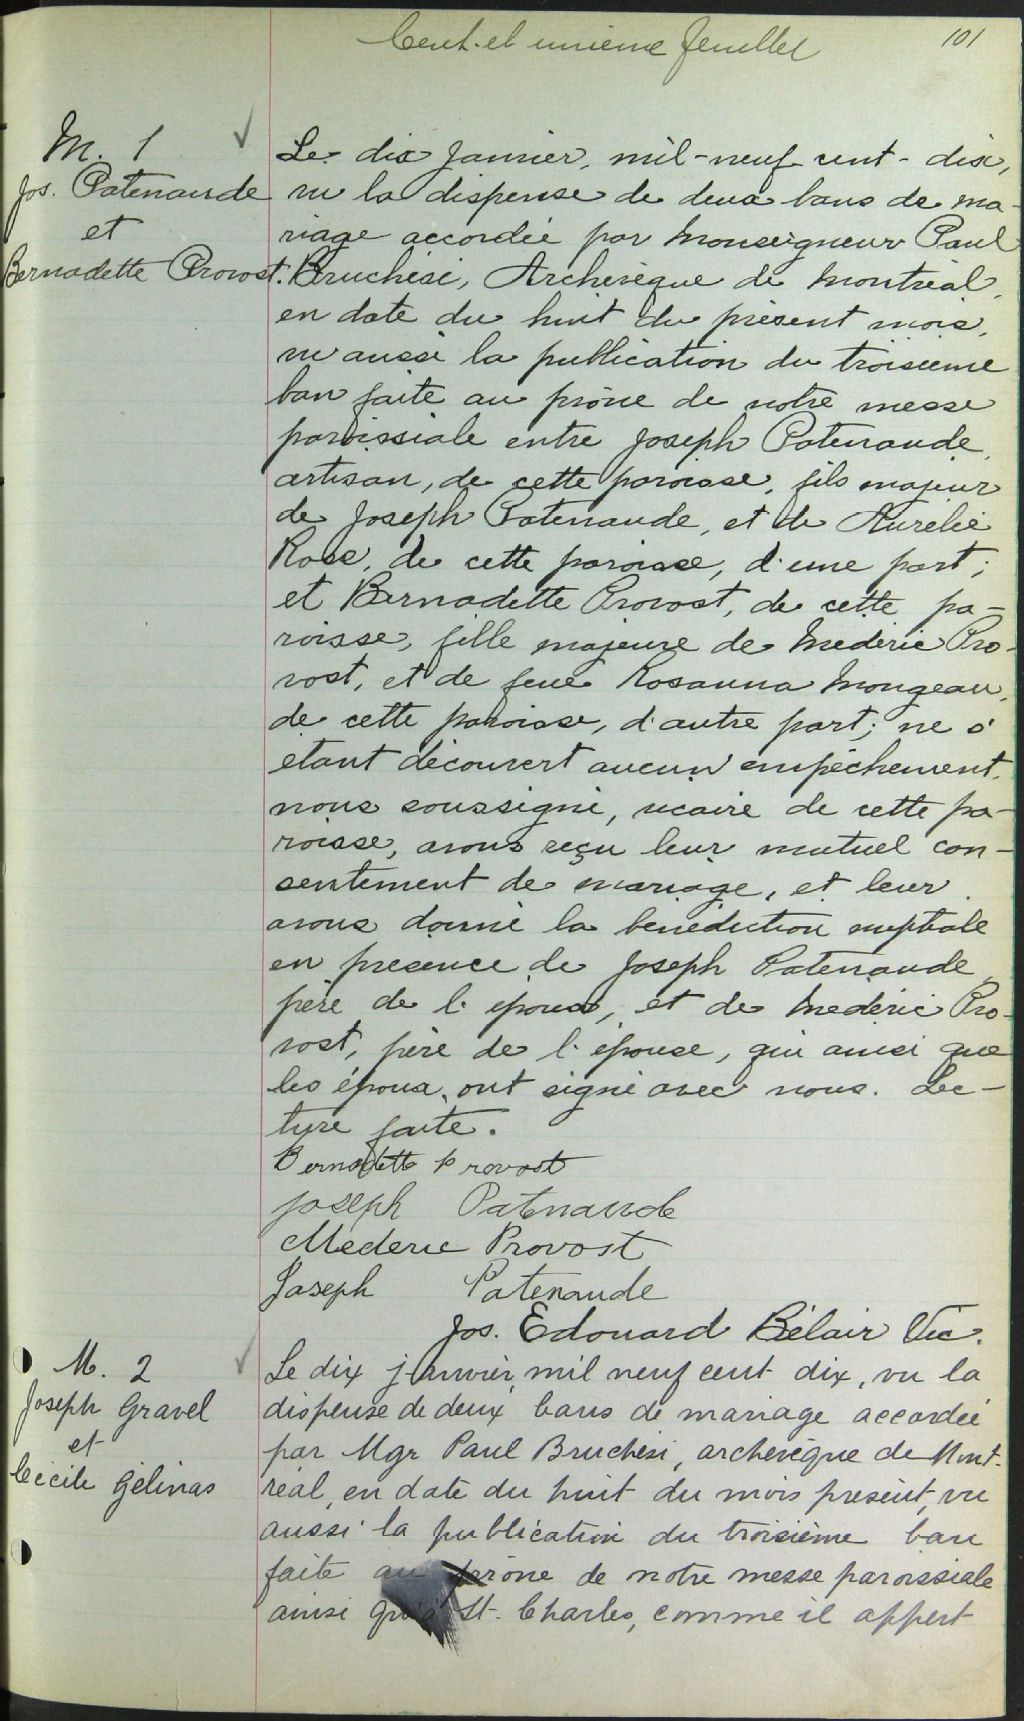 Cent-et unième feuillet
101
M. 1
Jos. Patenaude
et
Bernadette Provost.
Le dix janvier, mil-neuf cent-dix,
vu la dispense de deux bans de ma-
riage accordée par Monseigneur Paul
Bruchési, Archevêque de Montréal,
en date du huit du présent mois,
vu aussi la publication du troisième
ban faite au prône de notre messe
paroissiale entre Joseph Patenaude,
artisan, de cette paroisse, fils majeur
de Joseph Patenaude, et de Aurélie
Rose, de cette paroisse, d'une part;
et Bernadette Provost, de cette pa-
roisse, fille majeure de Médéric Pro-
vost, et de feue Rosanna Mongeau,
de cette paroisse, d'autre part; ne s'
étant découvert aucun empêchement,
nous soussigné, vicaire de cette pa-
roisse, avons reçu leur mutuel con-
sentement de mariage, et leur
avons donné la bénédiction nuptiale
en présence de Joseph Patenaude,
père de l'époux, et de Médéric Pro-
vost, père de l'épouse, qui ainsi que
les époux, ont signé avec nous. Lec-
ture faite.
Bernadette Provost
Joseph Patenaude
Mederic Provost
Joseph Patenaude
Jos. Edouard Bélair Vic.
M. 2
Joseph Gravel
et
Cécile Gélinas
Le dix janvier mil neuf cent dix, vu la
dispense de deux bans de mariage accordée
par Mgr Paul Bruchési, archevêque de Mont-
réal, en date du huit du mois présent, vu
aussi la publication du troisième ban
faite au prône de notre messe paroissiale
ainsi qu'à St. Charles, comme il appert